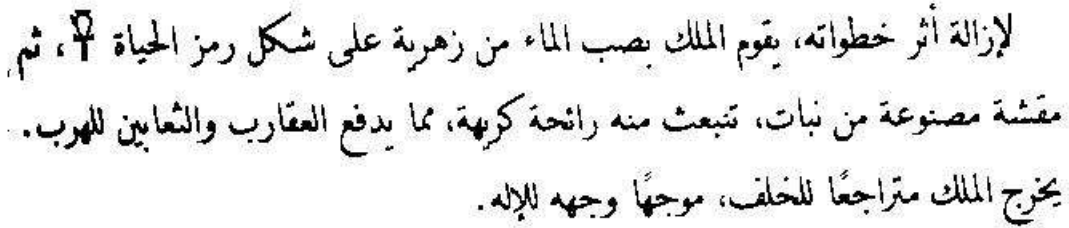 لإزالة أثر خطواته، يقوم الملك بصب الماء من زهرية على شكل رمز الحياة ☥، ثم
مقشة مصنوعة من نبات، تنبعث منه رائحة كريهة، مما يدفع العقارب والثعابين للهرب.
يخرج الملك متراجعًا للخلف، موجهًا وجهه للإله.